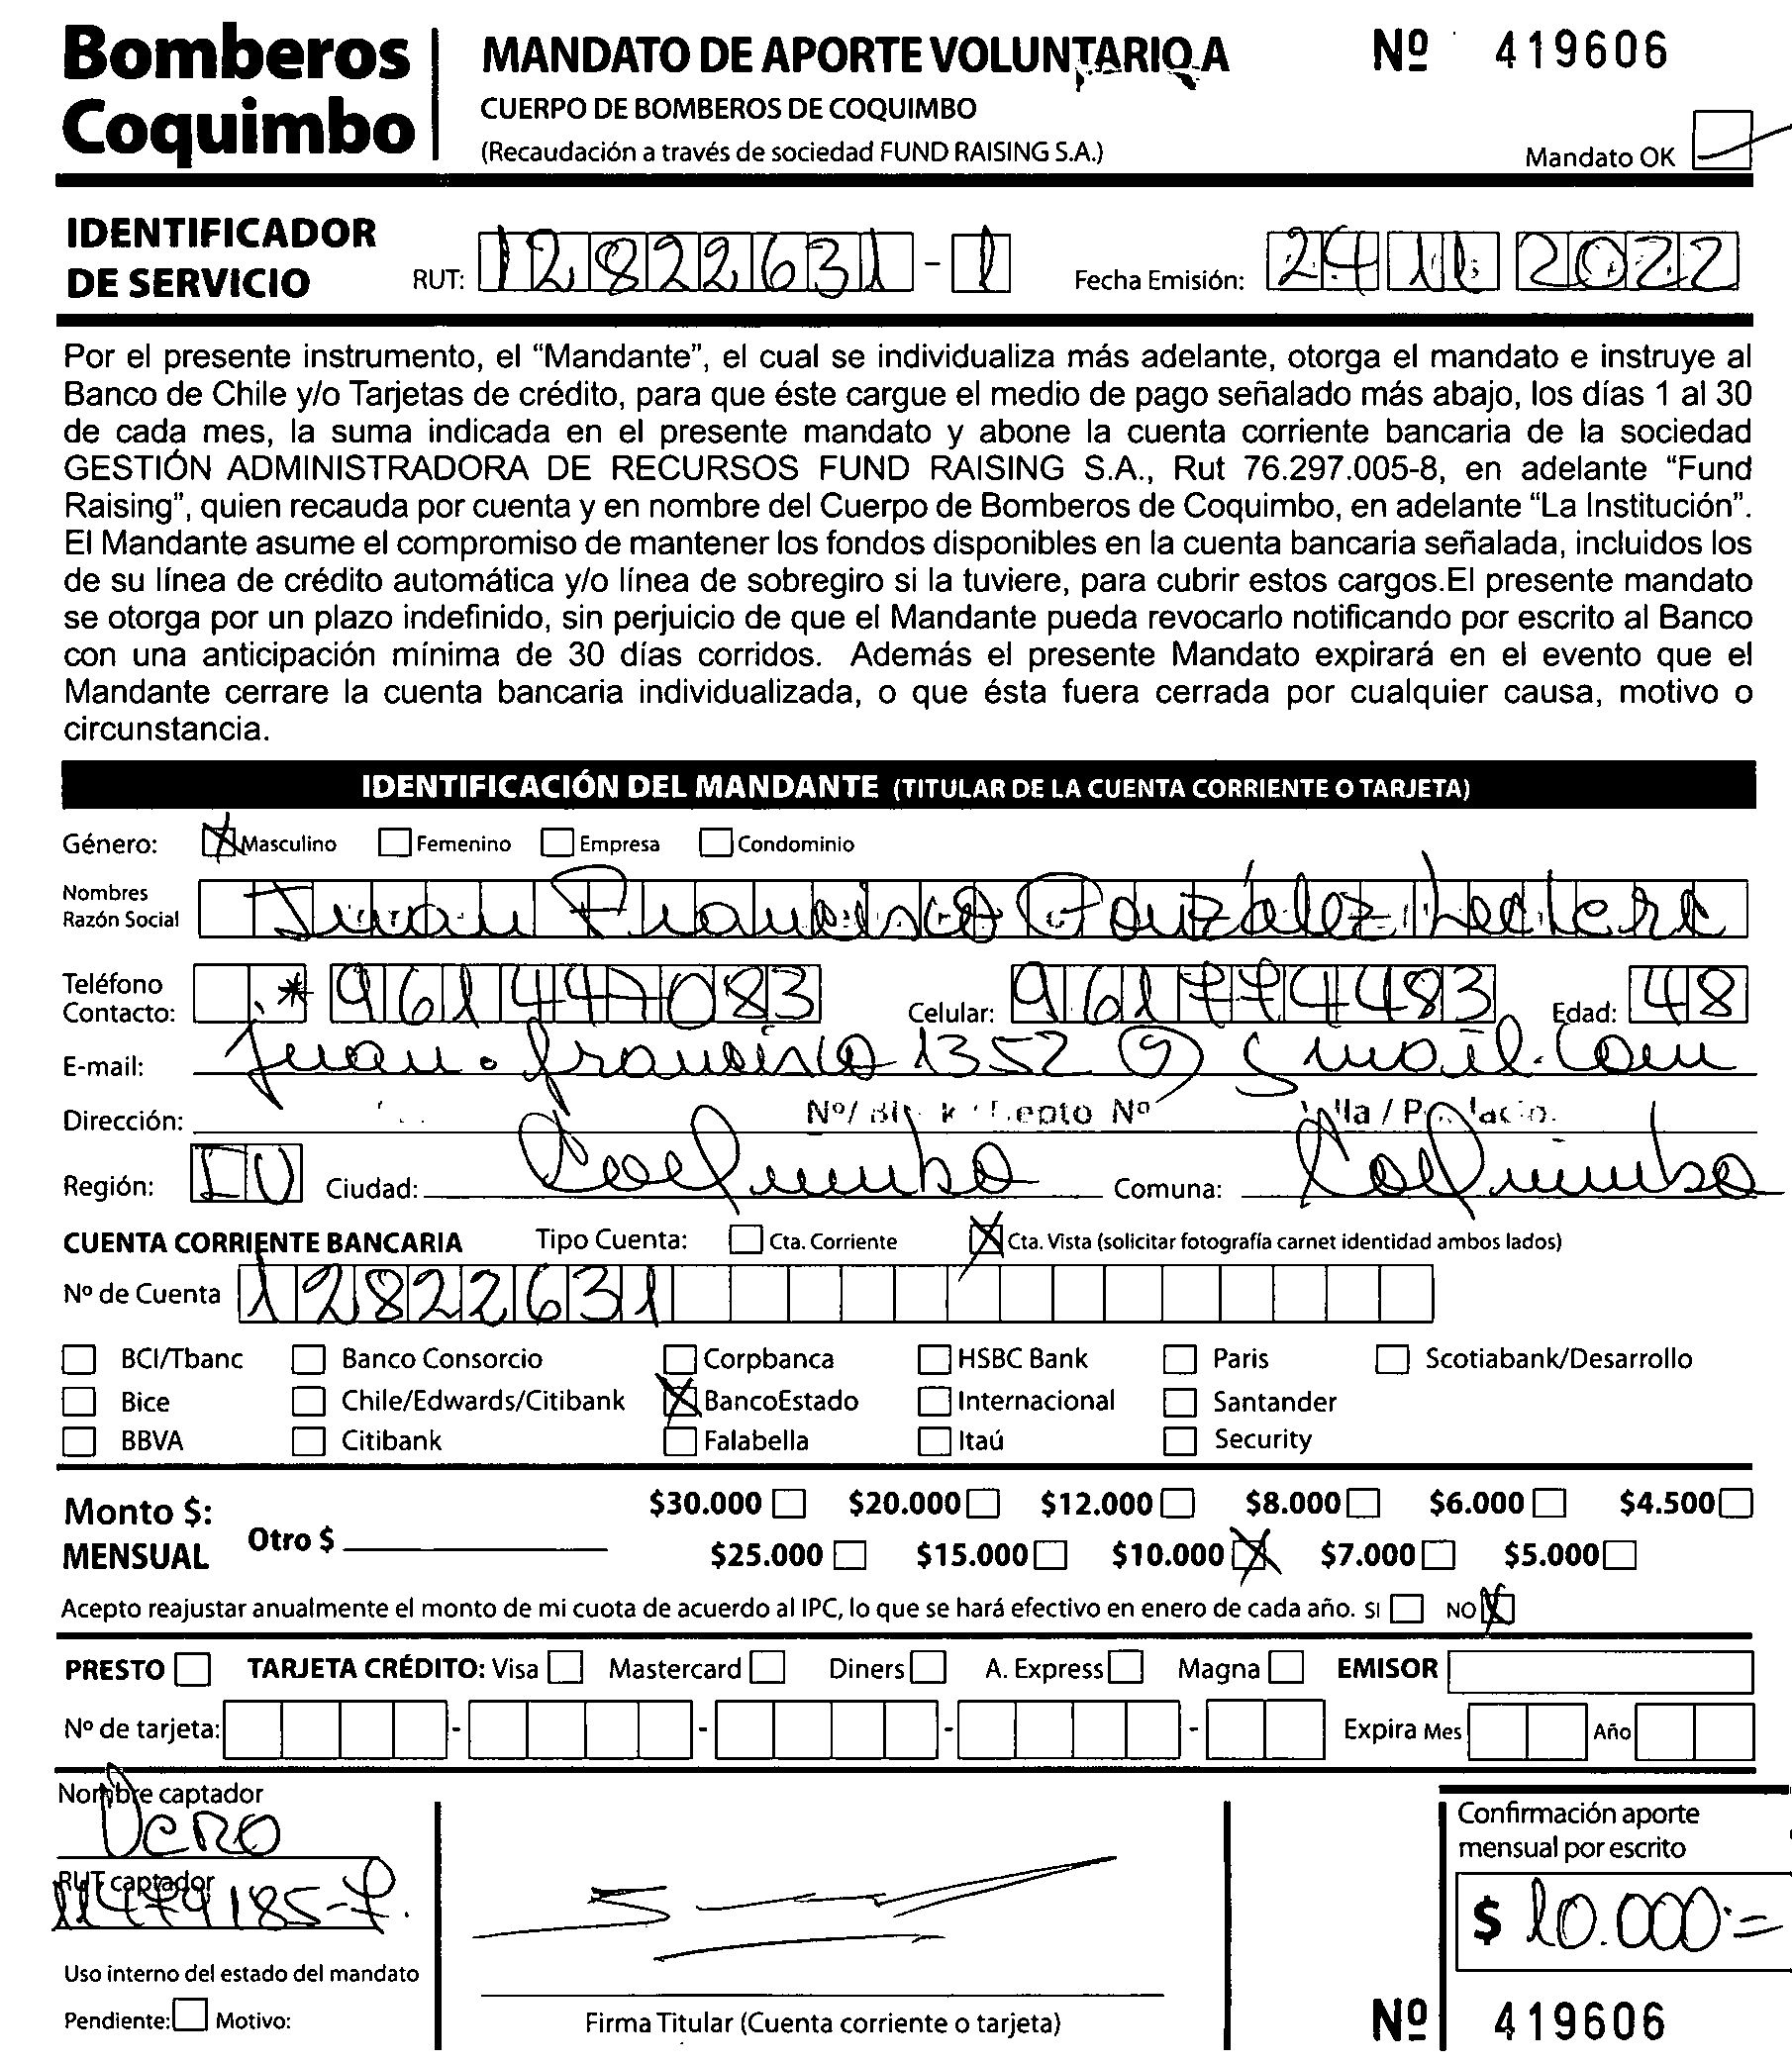 Bomberos
Coquimbo
MANDATO DE APORTE VOLUNTARIO A
CUERPO DE BOMBEROS DE COQUIMBO
(Recaudación a través de sociedad FUND RAISING S.A.)
Nº 419606
Mandato OK
IDENTIFICADOR
DE SERVICIO
RUT: 12822631-1 Fecha Emisión: 24 11 2022
Por el presente instrumento, el “Mandante”, el cual se individualiza más adelante, otorga el mandato e instruye al
Banco de Chile y/o Tarjetas de crédito, para que éste cargue el medio de pago señalado más abajo, los días 1 al 30
de cada mes, la suma indicada en el presente mandato y abone la cuenta corriente bancaria de la sociedad
GESTIÓN ADMINISTRADORA DE RECURSOS FUND RAISING S.A., Rut 76.297.005-8, en adelante “Fund
Raising”, quien recauda por cuenta y en nombre del Cuerpo de Bomberos de Coquimbo, en adelante “La Institución”.
El Mandante asume el compromiso de mantener los fondos disponibles en la cuenta bancaria señalada, incluidos los
de su línea de crédito automática y/o línea de sobregiro si la tuviere, para cubrir estos cargos.El presente mandato
se otorga por un plazo indefinido, sin perjuicio de que el Mandante pueda revocarlo notificando por escrito al Banco
con una anticipación mínima de 30 días corridos. Además el presente Mandato expirará en el evento que el
Mandante cerrare la cuenta bancaria individualizada, o que ésta fuera cerrada por cualquier causa, motivo o
circunstancia.
IDENTIFICACIÓN DEL MANDANTE (TITULAR DE LA CUENTA CORRIENTE O TARJETA)
Género: Masculino Femenino Empresa Condominio
Nombres
Razón Social Juan Francisco González
Teléfono
Contacto: 961447083 Celular: 961774483 Edad: 48
E-mail: juan.francisco1352@gmail.com
Dirección: Nº/ Depto Nº
Región: IV Ciudad: Coquimbo Comuna: Coquimbo
CUENTA CORRIENTE BANCARIA Tipo Cuenta: Cta. Corriente Cta. Vista (solicitar fotografía carnet identidad ambos lados)
Nº de Cuenta 12822631
BCI/Tbanc Banco Consorcio Corpbanca HSBC Bank Paris Scotiabank/Desarrollo
Bice Chile/Edwards/Citibank BancoEstado Internacional Santander
BBVA Citibank Falabella Itaú Security
Monto $:
MENSUAL
Otro $
$30.000 $20.000 $12.000 $8.000 $6.000 $4.500
$25.000 $15.000 $10.000 $7.000 $5.000
Acepto reajustar anualmente el monto de mi cuota de acuerdo al IPC, lo que se hará efectivo en enero de cada año. SI NO
PRESTO TARJETA CRÉDITO: Visa Mastercard Diners A. Express Magna EMISOR
Nº de tarjeta: Expira Mes Año
Nombre captador
Vero
RUT captador
11479185-7.
Uso interno del estado del mandato
Pendiente: Motivo:
Firma Titular (Cuenta corriente o tarjeta)
Confirmación aporte
mensual por escrito
$ 10.000.=
Nº 419606